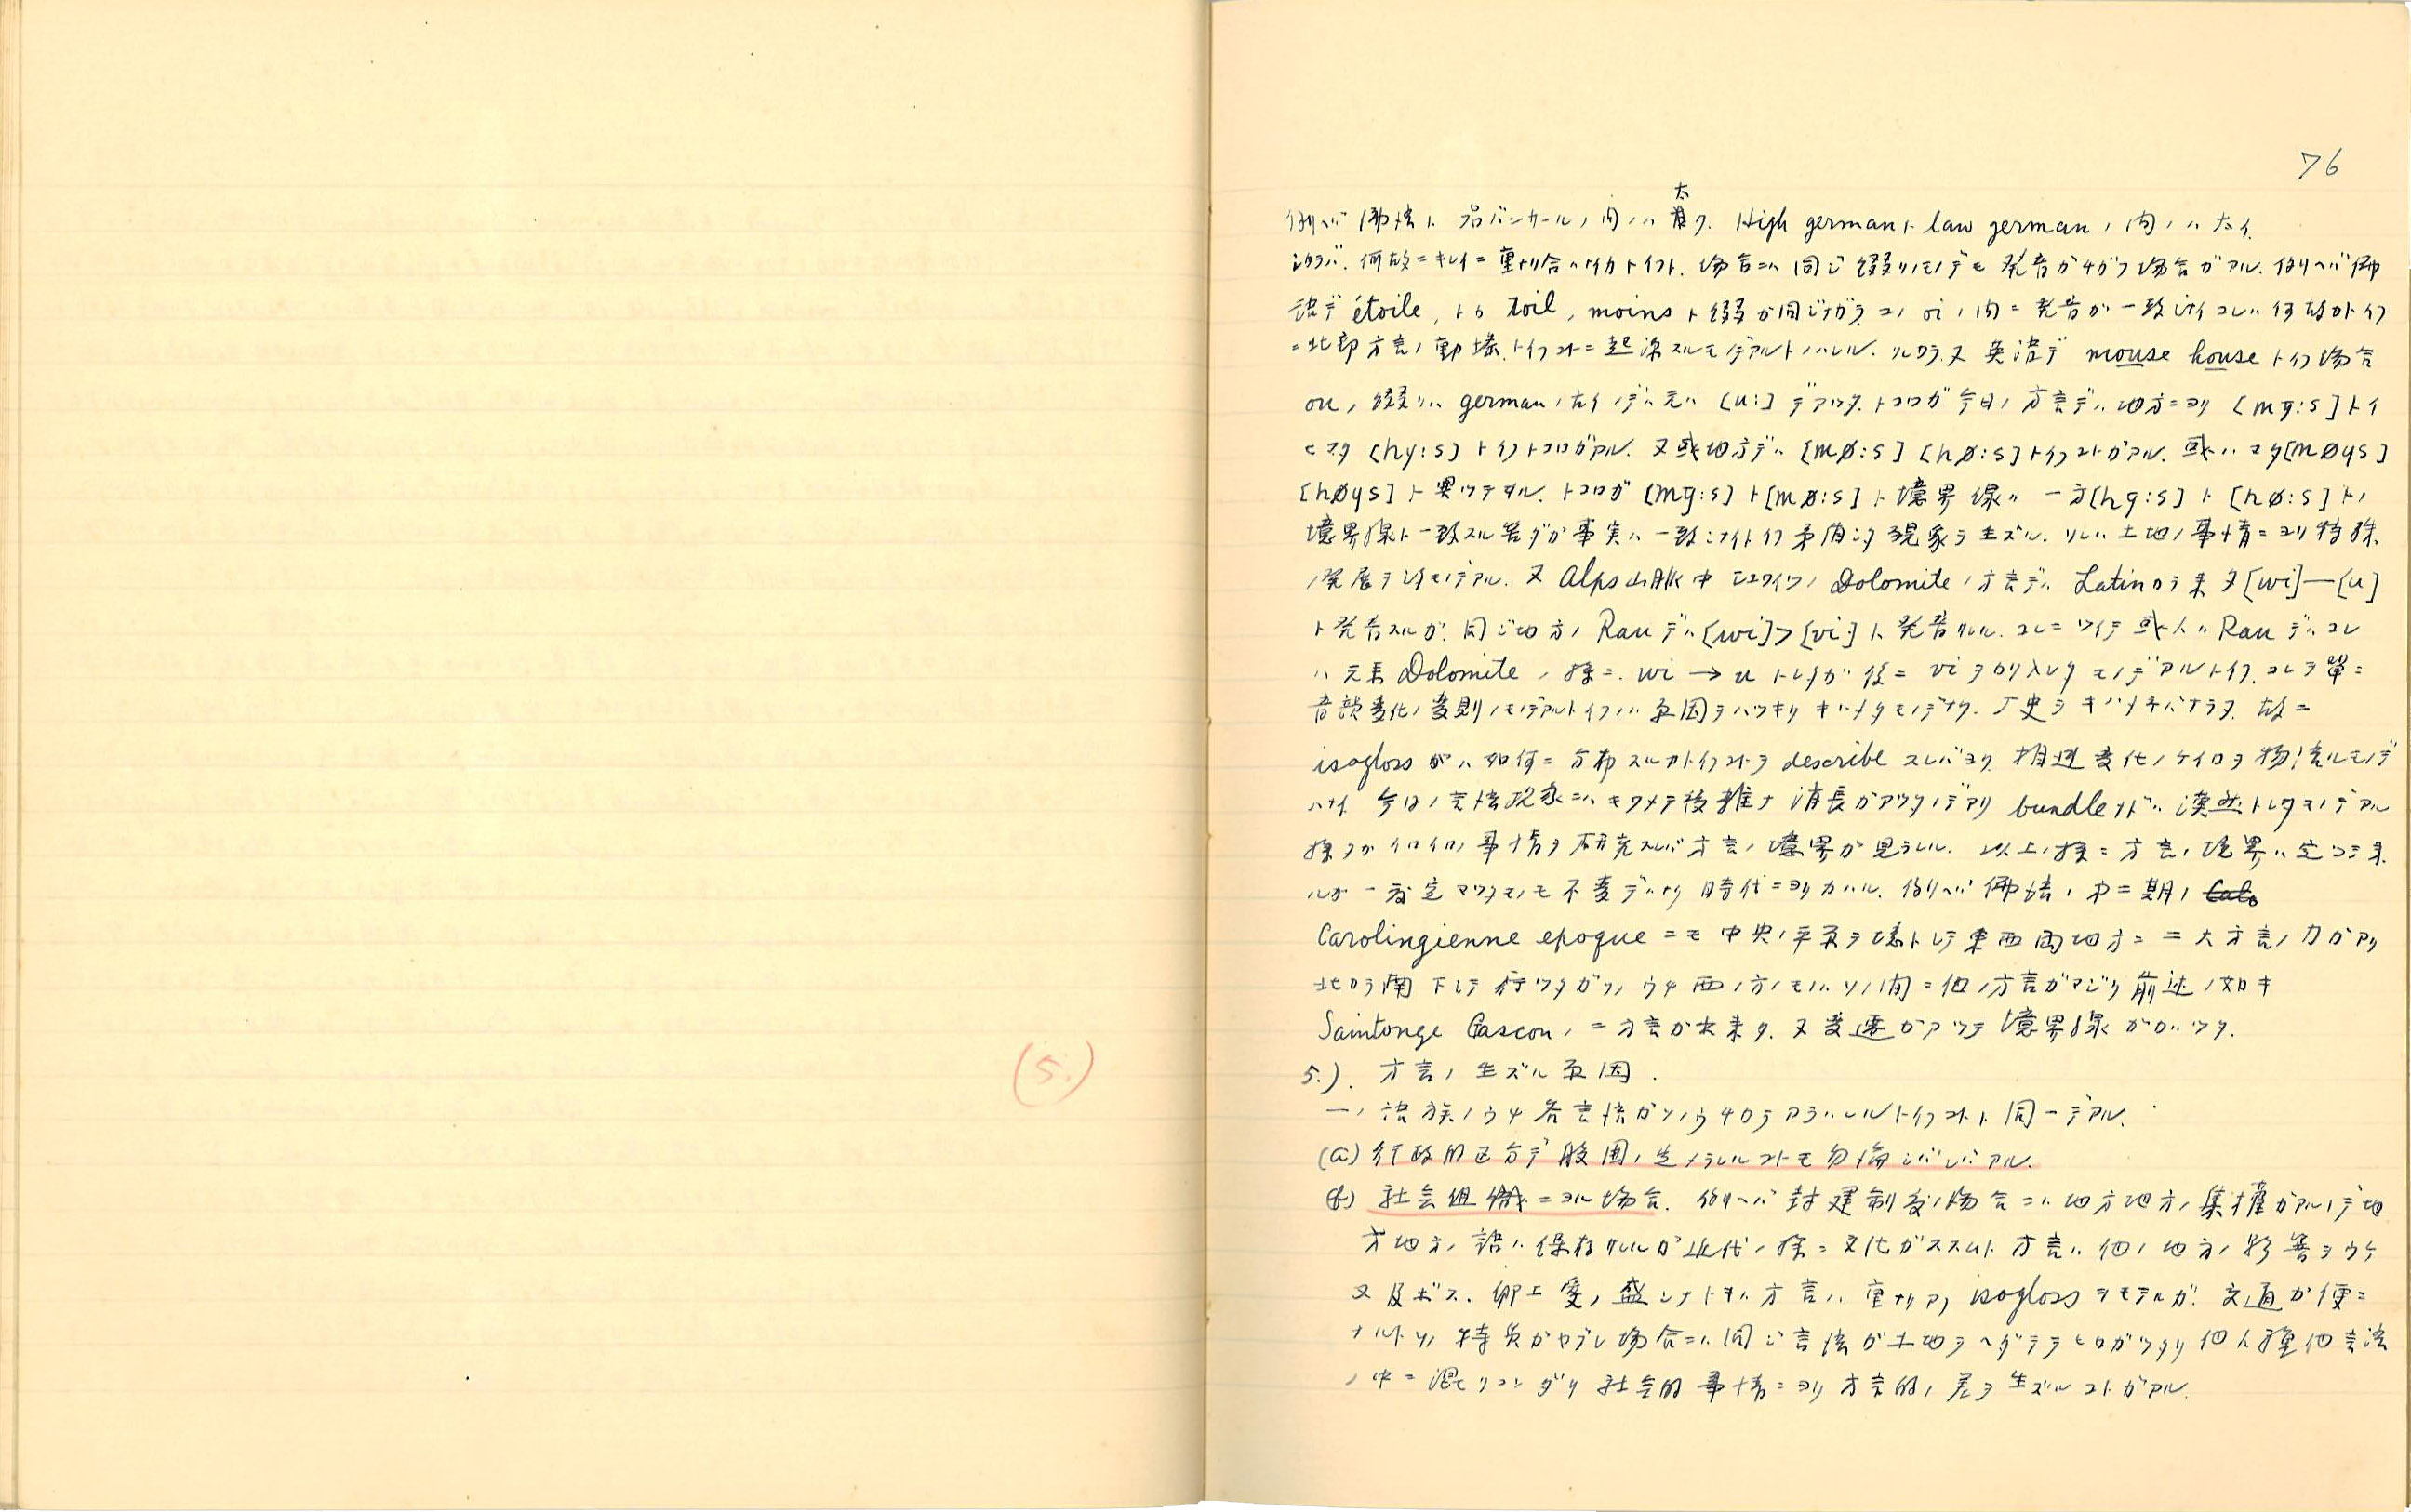 76
例ヘバ佛語ト プロバンサール ノ間ノハ太ク. High german ト law german ノ間ノハ太イ.
シカラバ. 何故ニキレイニ重ナリ合ハナイカトイフト. 場合ニハ同ジ綴リノモノデモ発音ガチガフ場合ガアル. 例ヘバ佛
語デ étoile, トカ toil, moins ト綴ガ同ジナガラコノ oi ノ間ニ発音ガ一致シナイ コレハ何故カトイフ
ニ北部方言ノ動搖トイフコトニ起源スルモノデアルトイハレル. ソレカラ又英語デ mouse house トイフ場合
ou ノ綴リハ german ノ古イノデハ元ハ [u:] デアツタ. トコロガ今日ノ方言デハ地方ニヨリ [my:s] トイ
ヒマタ [hy:s] トイフトコロガアル. 又或地方デハ [mø:s] [hø:s] トイフコトガアル. 或ハマタ [møys]
[høys] ト異ツテヰル. トコロガ [my:s] ト [mø:s] ト境界線ハ一方 [hy:s] ト [hø:s] トノ
境界線ト一致スル筈ダガ事実ハ一致シナイトイフ矛盾シタ現象ヲ生ズル. ソレハ土地ノ事情ニヨリ特殊
ノ発展ヲシタモノデアル. 又 Alps 山脈中 ノ Dolomite ノ方言デハ Latin カラ来タ [wi]―[u]
ト発音スルガ. 同ジ地方ノ Rau デハ [wi]>[vi] ト発音サレル. コレニツイテ或人ハ Rau デハコレ
ハ元来 Dolomite ノ様ニ. wi → u トシタガ後ニ vi ヲカリ入レタモノデアルトイフ. コレヲ單ニ
音韻変化ノ変則ノモノデアルトイフノハ原因ヲハツキリキハメタモノデナク. 厂史ヲキハメネバナラヌ. 故ニ
isogloss ガハ如何ニ分布スルカトイフコトヲ describe スレバヨク 変化ノケイロヲ物語ルモノデ
ハナイ. 今日ノ言語現象ニハキワメテ複雑ナ消長ガアツタノデアリ bundle ナドハ漠然トシタモノデアル
様ダガイロイロノ事情ヲ研究スレバ方言ノ境界ガ見ラレル. 以上ノ様ニ方言ノ境界ハ定マツテ来
ルガ一度定マツタモノモ不変デハナク時代ニヨリカハル. 例ヘバ佛語ノ第二期ノ
Carolingienne epoque ニモ中央ノ平原ヲ境トシテ東西両地方ニ二大方言ノ力ガアリ
北カラ南下シテ行ツタガソノウチ西ノ方ノモノハソノ間ニ他ノ方言ガマジリ前述ノ如キ
Saintonge Gascon ノ二方言ガ出来タ. 又変遷ガアツテ境界線ガカハツタ.
(5.)
5.). 方言ノ生ズル原因.
一ノ語族ノウチ各言語ガソノウチカラアラハレルトイフコトト同一デアル.
(a) 行政的区分デ範囲ノ定メラレルコトモ勿論シバシバアル.
(b) 社会組織ニヨル場合. 例ヘバ封建制度ノ場合ニハ地方地方ノ集権ガアルノデ地
方地方ノ語ハ保存サレルガ近代ノ様ニ文化ガススムト方言ハ他ノ地方ノ影響ヲウケ
又及ボス. 郷土愛ノ盛ンナトキハ方言ハ重ナリアフ isogloss ヲモテルガ. 交通ガ便ニ
ナルトソノ特質ガヤブレ場合ニハ同ジ言語ガ土地ヲヘダテテヒロガツタリ他人種他言語
ノ中ニ混ヒリコンダリ社会的事情ニヨリ方言的ノ差ヲ生ズルコトガアル.